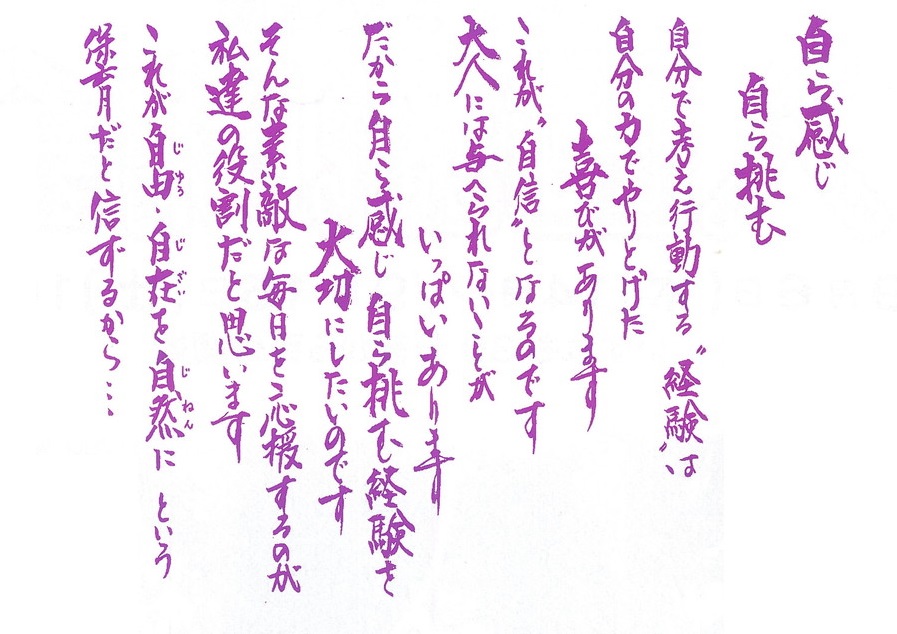 自ら感じ
自ら挑む
自分で考え行動する〝経験〟は
自分の力でやりとげた
喜びがあります
これが〝自信〟となるのです
大人には与へられないことが
いっぱいあります
だから自ら感じ 自ら挑む経験を
大切にしたいのです
そんな素敵な毎日を応援するのが
私達の役割だと思います
これが自由・自在を自然に という
じゆう じざい じねん
保育だと信ずるから…